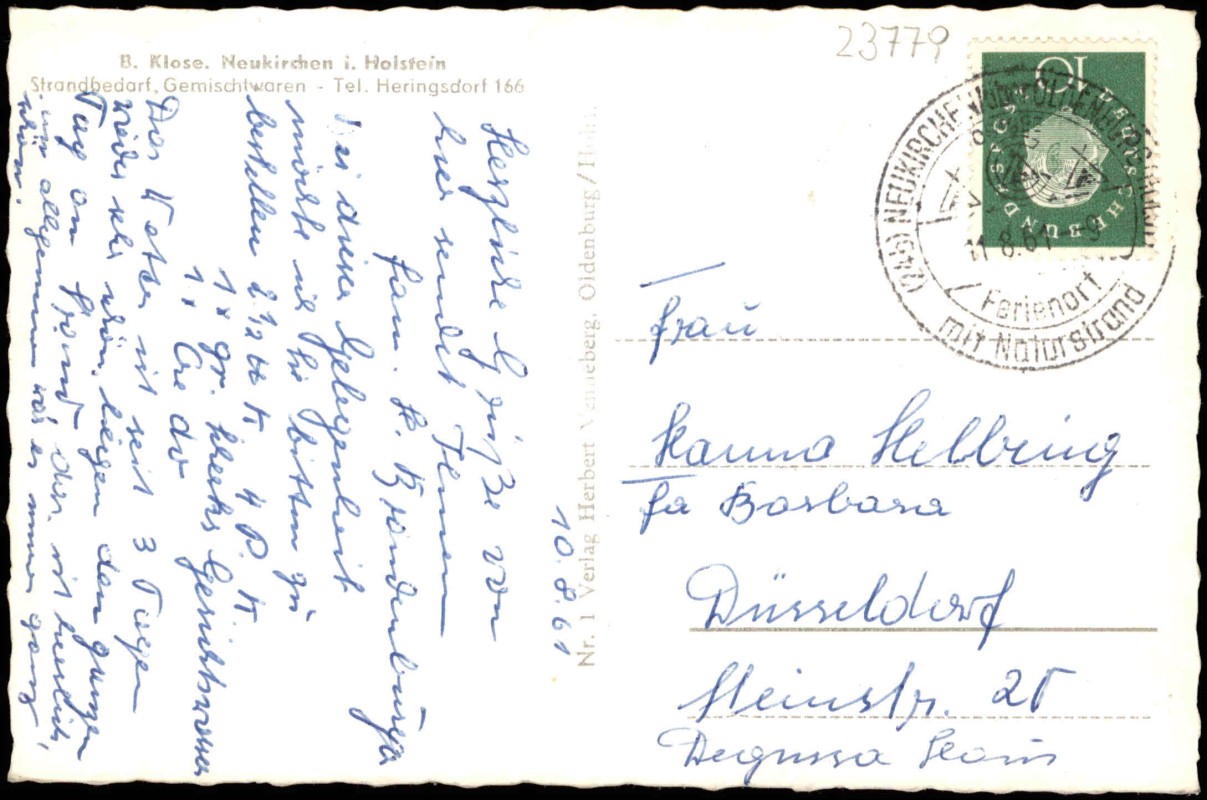 B. Klose. Neukirchen i. Holstein
Strandbedarf, Gemischtwaren - Tel. Heringsdorf 166
23779
10
DEUTSCHE BUNDESPOST
(24b) NEUKIRCHEN über OLDENBURG
11.8.61-9
Ferienort
mit Naturstrand
10.8.61
Herzliche Grüße von
hier sendet Ihnen
Fam. K. Brandenburger
Bei dieser Gelegenheit
möchte ich Sie bitten zu
bestellen
1x gr.
1x
Das Wetter ist seit 3 Tagen
wieder sehr schön, liegen den ganzen
Tag am Strand
im allgemeinen war es immer ganz
schön.
Nr. 1 Verlag Herbert Venneberg, Oldenburg / Holst.
Frau
Hanna Helbring
Fa Barbara
Düsseldorf
Steinstr. 20
Degussa Haus